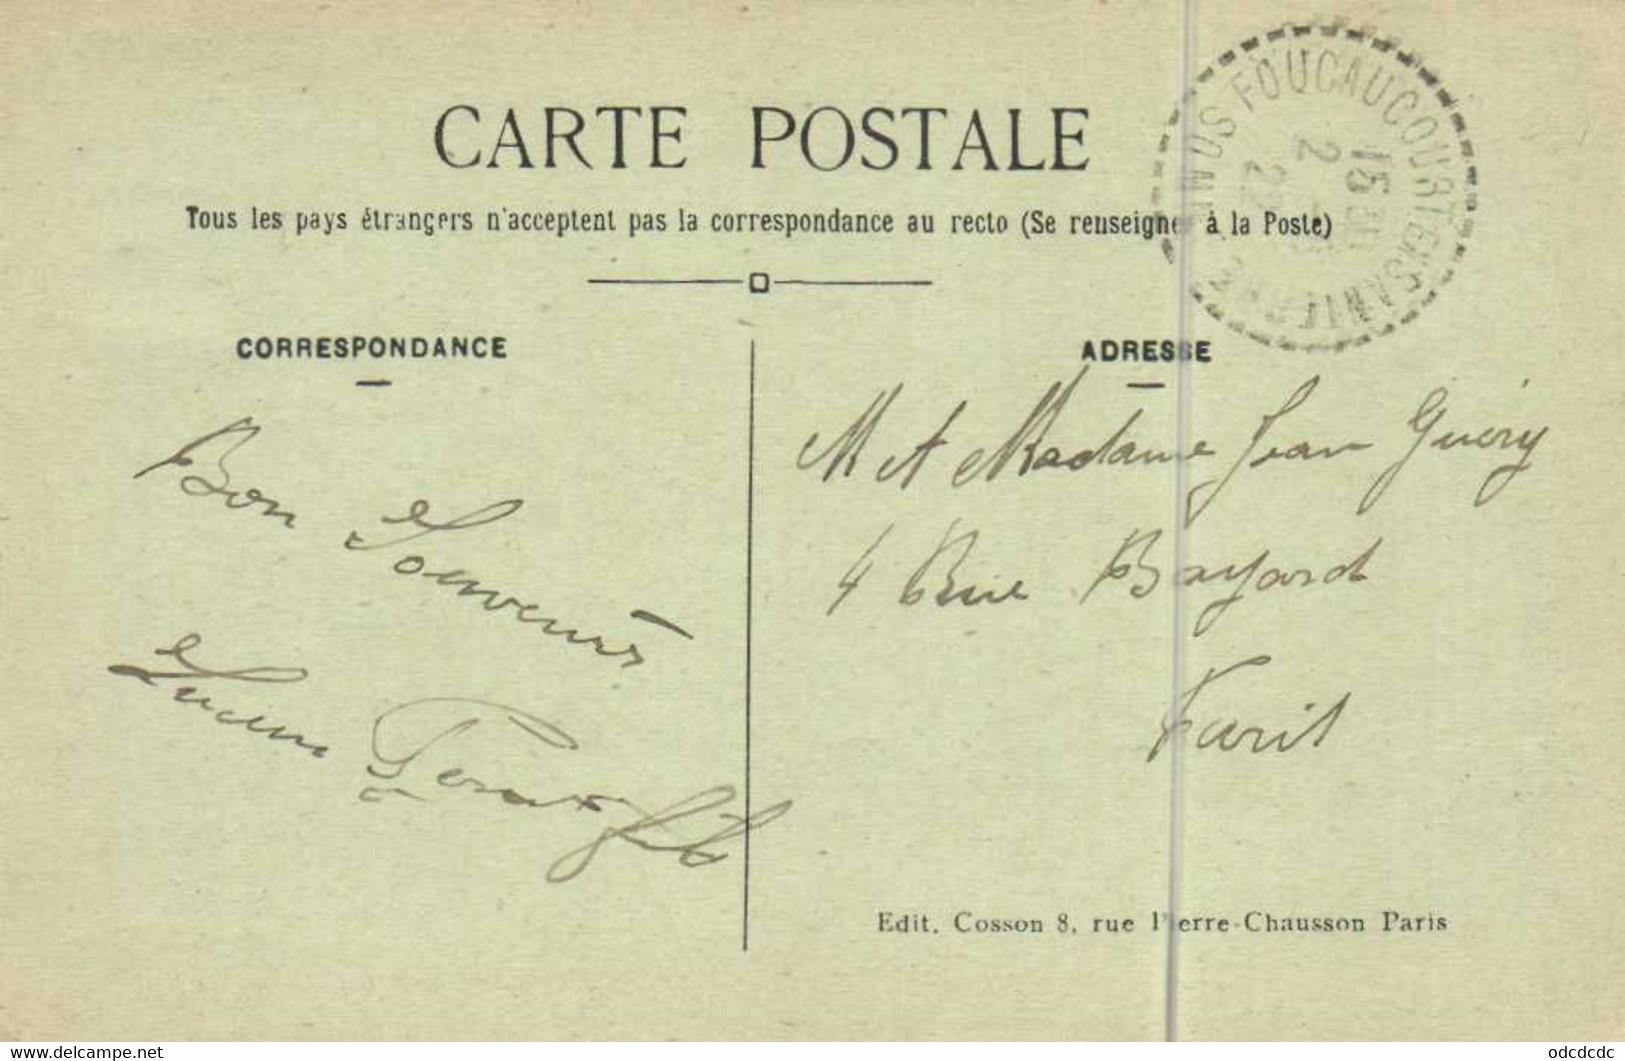 CARTE POSTALE
Tous les pays étrangers n'acceptent pas la correspondance au recto (Se renseigner à la Poste)
CORRESPONDANCE
Bon Souvenir
Lucien
ADRESSE
M et Madame Jean Guéry
4 Rue Bayard
Paris
Edit. Cosson 8, rue Pierre-Chausson Paris
FOUCAUCOURT-EN-SANTERRE
SOMME
15
2
22
www.delcampe.net
odcdcdc